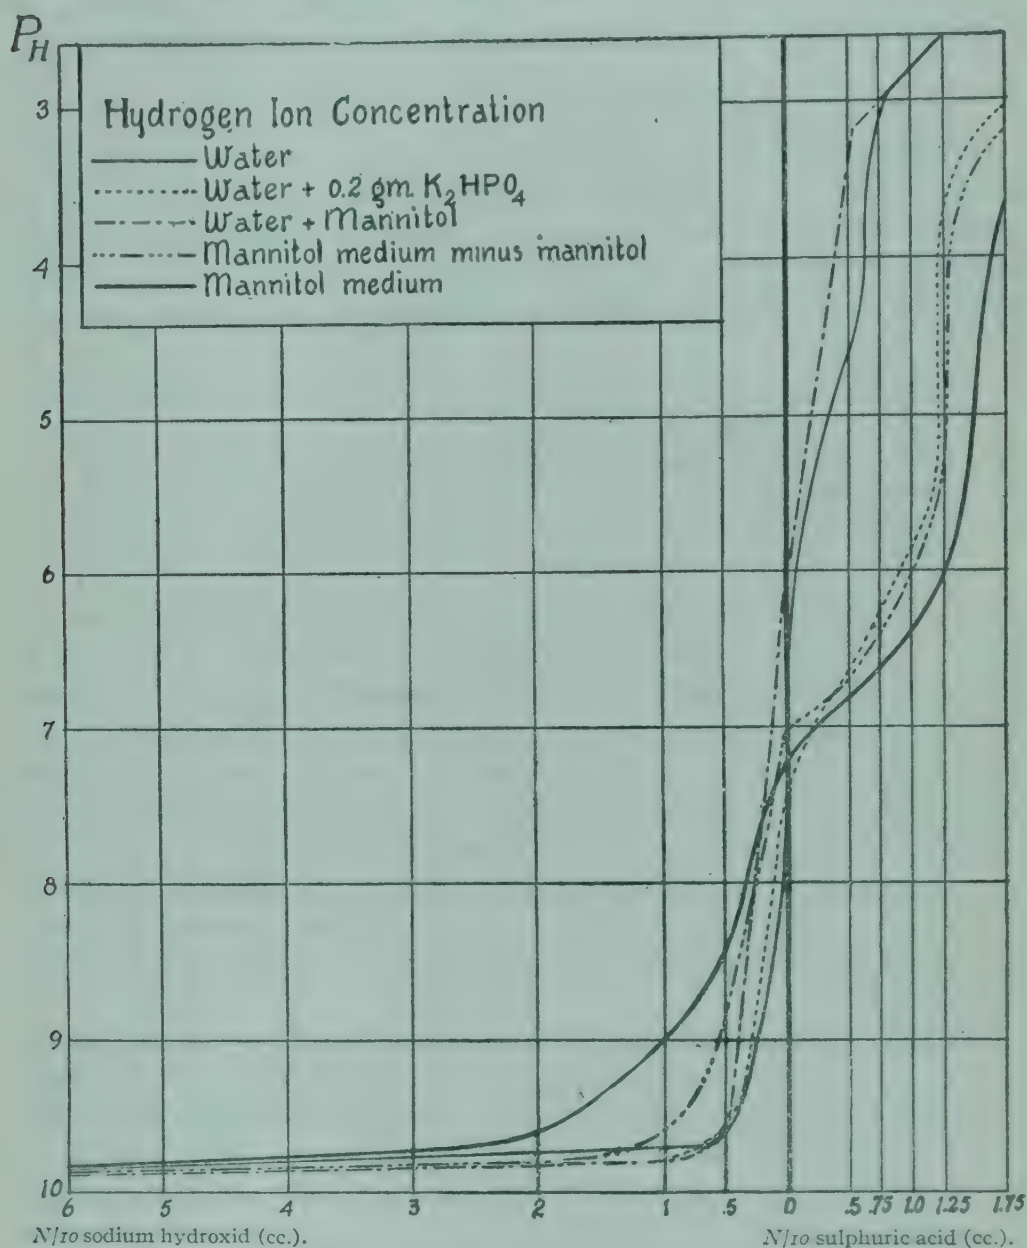 PH
Hydrogen Ion Concentration
Water
Water + 0.2 gm. K₂HPO₄
Water + Mannitol
Mannitol medium minus mannitol
Mannitol medium
3
4
5
6
7
8
9
10
6 5 4 3 2 1 .5 0 .5 .75 1.0 1.25 1.75
N/10 sodium hydroxid (cc.). N/10 sulphuric acid (cc.).